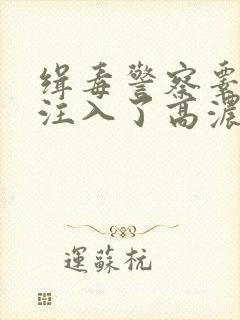 缉毒警察
注入了高濃
運蘇杭